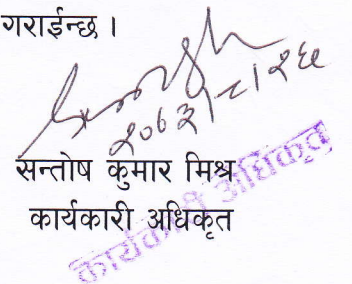 गराईन्छ ।
२०७३।८।२६
सन्तोष कुमार मिश्र
कार्यकारी अधिकृत
कार्यकारी अधिकृत